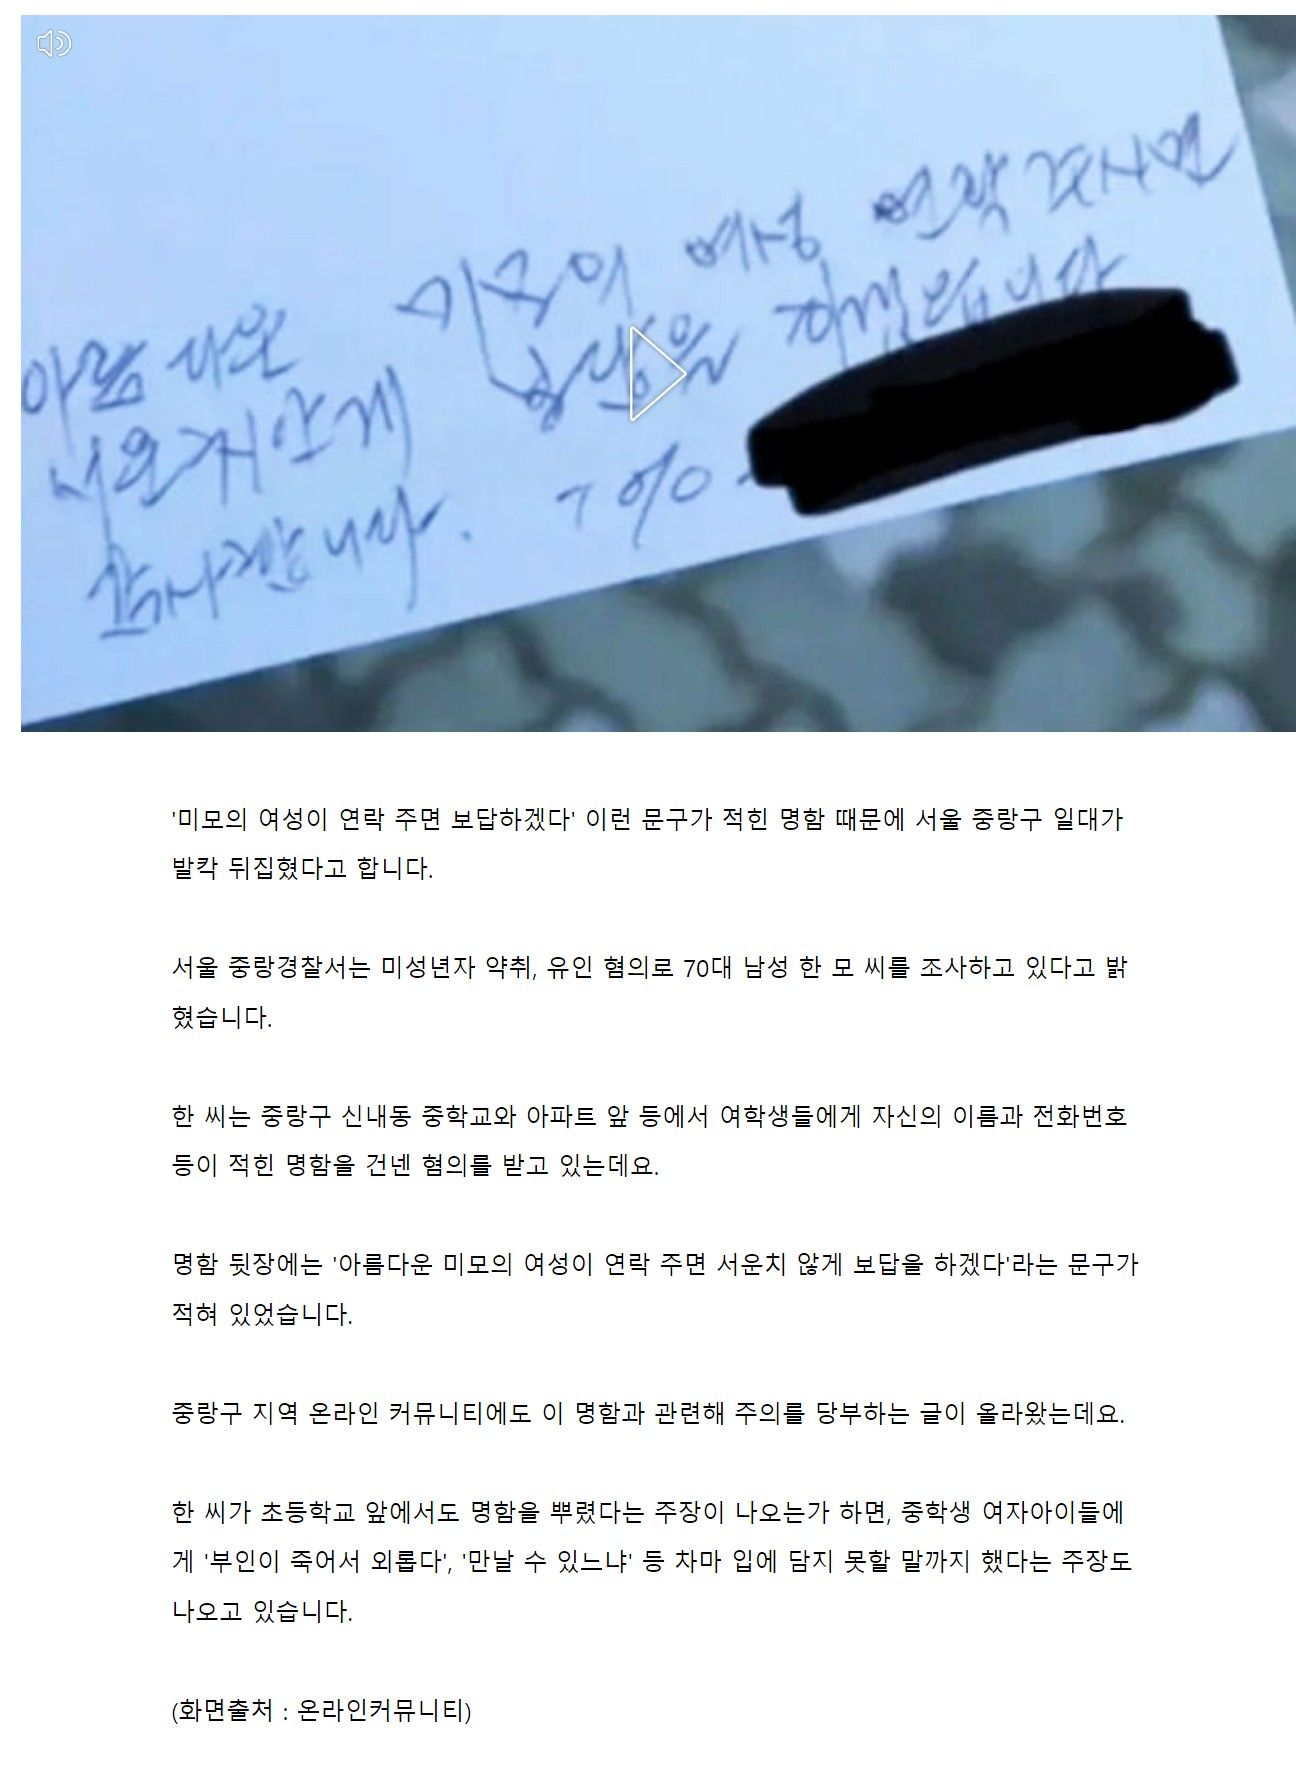 아름다운 미모의 여성 연락주시면
서운지안게 보답을 하겠습니다
감사합니다. 010-
'미모의 여성이 연락 주면 보답하겠다' 이런 문구가 적힌 명함 때문에 서울 중랑구 일대가
발칵 뒤집혔다고 합니다.
서울 중랑경찰서는 미성년자 약취, 유인 혐의로 70대 남성 한 모 씨를 조사하고 있다고 밝
혔습니다.
한 씨는 중랑구 신내동 중학교와 아파트 앞 등에서 여학생들에게 자신의 이름과 전화번호
등이 적힌 명함을 건넨 혐의를 받고 있는데요.
명함 뒷장에는 '아름다운 미모의 여성이 연락 주면 서운치 않게 보답을 하겠다'라는 문구가
적혀 있었습니다.
중랑구 지역 온라인 커뮤니티에도 이 명함과 관련해 주의를 당부하는 글이 올라왔는데요.
한 씨가 초등학교 앞에서도 명함을 뿌렸다는 주장이 나오는가 하면, 중학생 여자아이들에
게 '부인이 죽어서 외롭다', '만날 수 있느냐' 등 차마 입에 담지 못할 말까지 했다는 주장도
나오고 있습니다.
(화면출처 : 온라인커뮤니티)